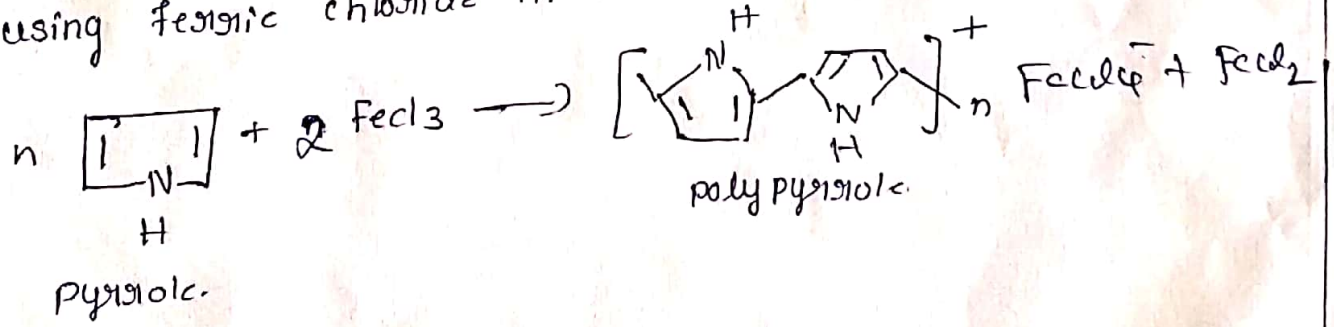 using ferric chloride
n N H + 2 Fecl3 → [ H N N H ]+ n Fecl4- + Fecl2
polypyrrole.
pyrrole.